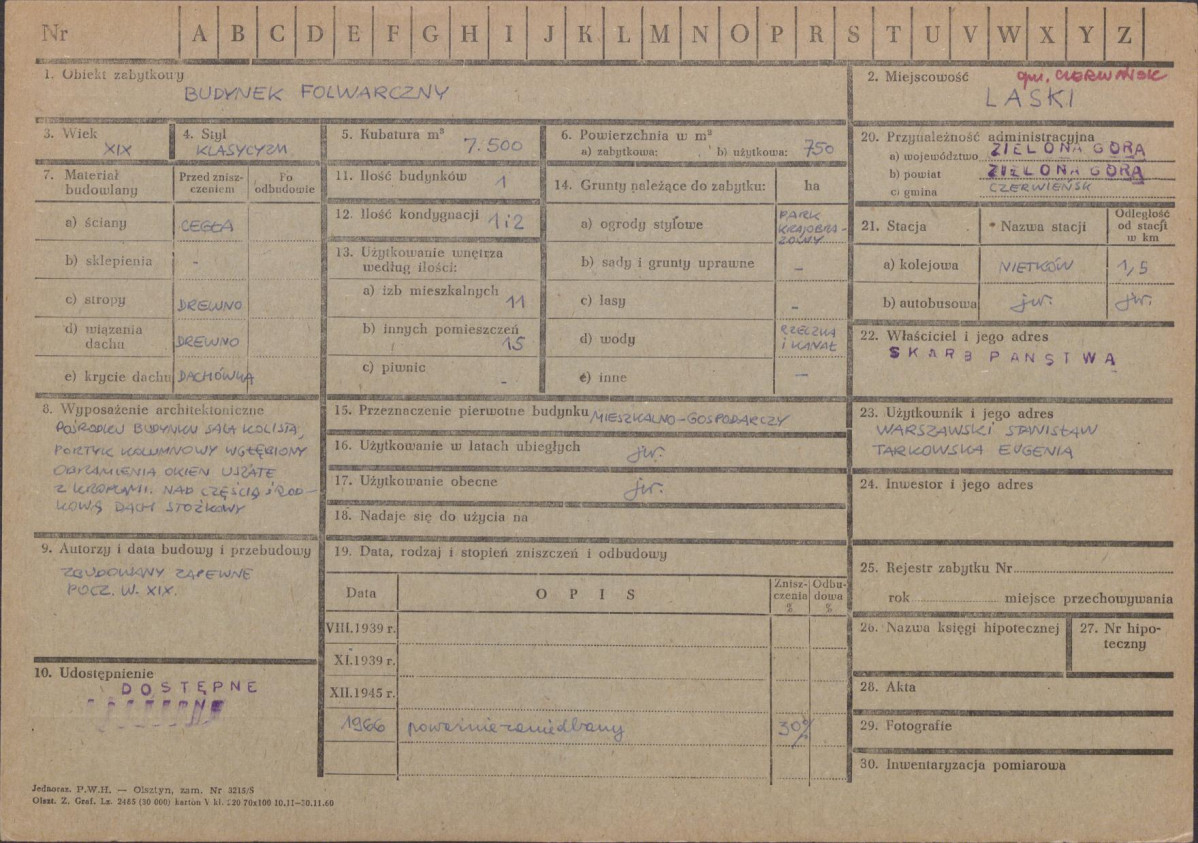 Nr A B C D E F G H I J K L M N O P R S T U V W X Y Z
1. Obiekt zabytkowy
BUDYNEK FOLWARCZNY
2. Miejscowość gm. CZERWIŃSK
LASKI
3. Wiek
XIX
4. Styl
KLASYCYZM
5. Kubatura m³
7.500
6. Powierzchnia w m²
a) zabytkowa: b) użytkowa: 750
7. Materiał budowlany
Przed znisz-
czeniem
Po
odbudowie
a) ściany CEGŁA
b) sklepienia -
c) stropy DREWNO
d) wiązania
dachu DREWNO
e) krycie dachu DACHÓWKA
8. Wyposażenie architektoniczne
POŚRODKU BUDYNKU SALA KOLISTA,
PORTYK KOLUMNOWY WGŁĘBIONY
OBRAMIENIA OKIEN USZATE
Z KROPLAMI. NAD CZĘŚCIĄ ŚROD-
KOWĄ DACH STOŻKOWY
9. Autorzy i data budowy i przebudowy
ZBUDOWANY ZAPEWNE
POCZ. W. XIX.
10. Udostępnienie
DOSTĘPNE
11. Ilość budynków 1
12. Ilość kondygnacji 1 i 2
13. Użytkowanie wnętrza
według ilości:
a) izb mieszkalnych 11
b) innych pomieszczeń
15
c) piwnic -
14. Grunty należące do zabytku: ha
a) ogrody stylowe PARK
KRAJOBRA-
ZOWY
b) sady i grunty uprawne -
c) lasy -
d) wody RZECZKA
I KANAŁ
e) inne -
15. Przeznaczenie pierwotne budynku MIESZKALNO-GOSPODARCZY
16. Użytkowanie w latach ubiegłych jw.
17. Użytkowanie obecne jw.
18. Nadaje się do użycia na
19. Data, rodzaj i stopień zniszczeń i odbudowy
Data OPIS Znisz-
czenia
% Odbu-
dowa
%
VIII.1939 r.
XI.1939 r.
XII.1945 r.
1966 poważnie zaniedbany 30%
20. Przynależność administracyjna
a) województwo ZIELONA GÓRA
b) powiat ZIELONA GÓRA
c) gmina CZERWIEŃSK
21. Stacja * Nazwa stacji Odległość
od stacji
w km
a) kolejowa NIETKÓW 1,5
b) autobusowa jw. jw.
22. Właściciel i jego adres
SKARB PAŃSTWA
23. Użytkownik i jego adres
WARSZAWSKI STANISŁAW
TARKOWSKA EUGENIA
24. Inwestor i jego adres
25. Rejestr zabytku Nr
rok miejsce przechowywania
26. Nazwa księgi hipotecznej
27. Nr hipo-
teczny
28. Akta
29. Fotografie
30. Inwentaryzacja pomiarowa
Jednoraz. P.W.H. — Olsztyn, zam. Nr 3215/S
Olszt. Z. Graf. Lz. 2465 (30 000) karton V kl. 220 70x100 10.11-30.11.60